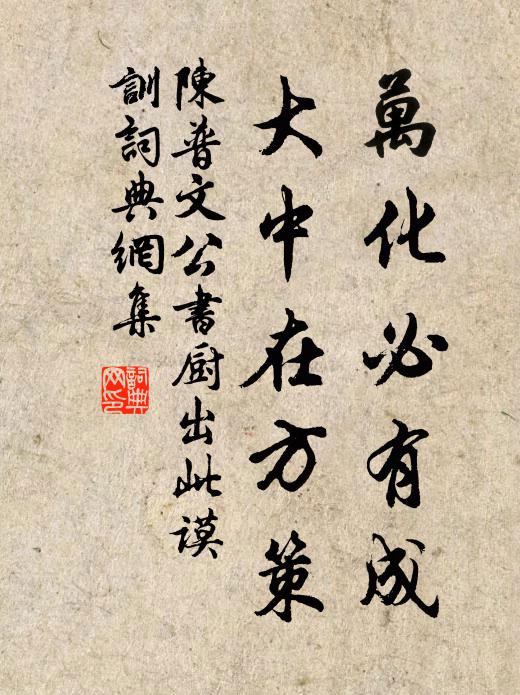 萬化必有成
大中在方策
陳普文公書厨出此謨
訓詞典網集
詞典網印